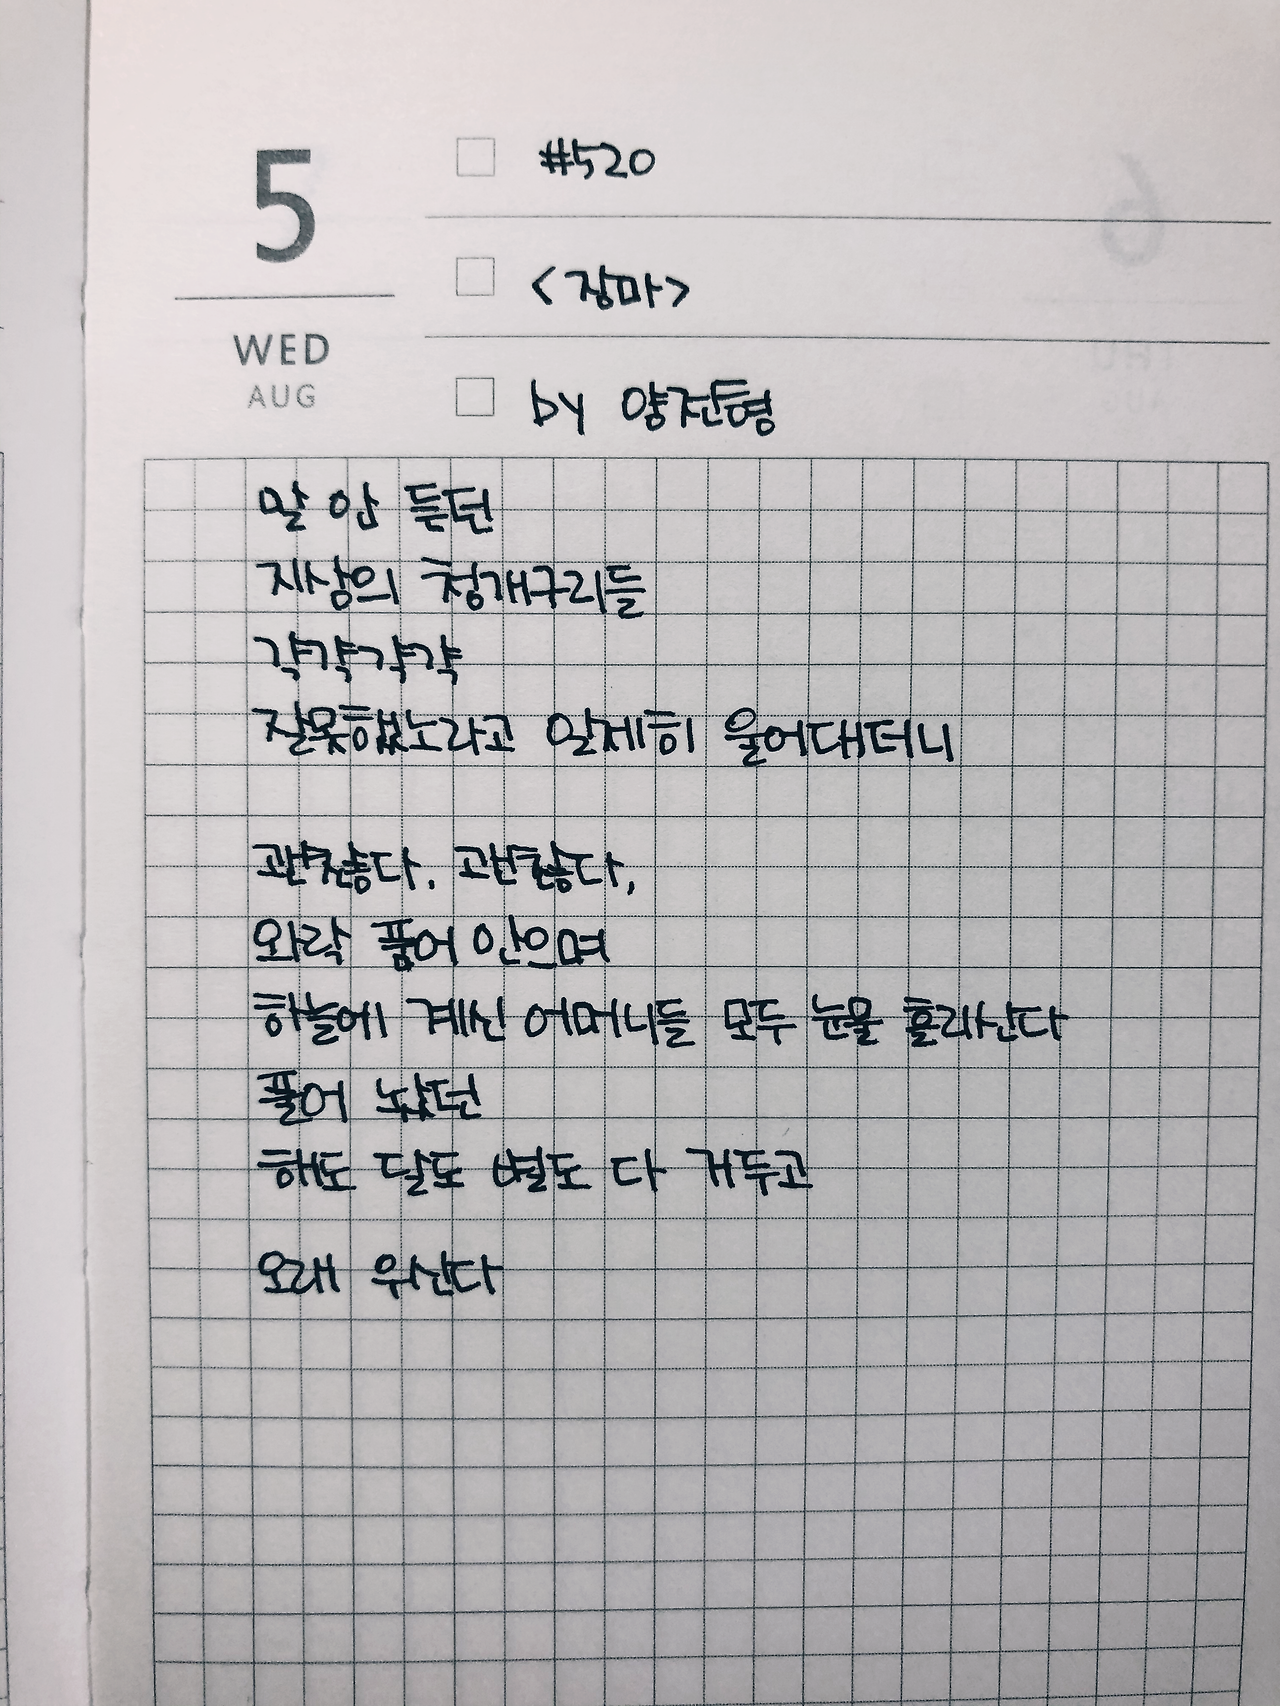 5
WED
AUG
#520
<장마>
by 양전형
말 안 듣던
지상의 청개구리들
갹갹갹갹
잘못했노라고 일제히 울어대더니
괜찮다. 괜찮다,
와락 품어 안으며
하늘에 계신 어머니들 모두 눈물 흘리신다
풀어 놨던
해도 달도 별도 다 거두고
오래 우신다